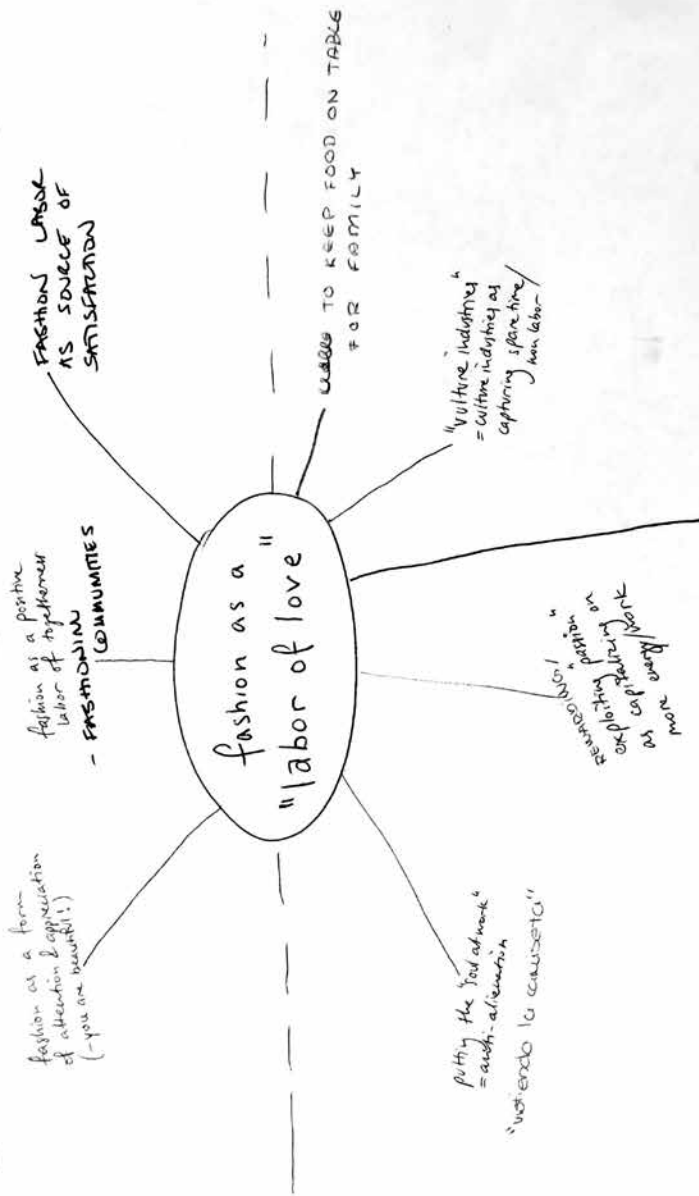 fashion as a form
of attention & appreciation
(-you are beautiful!)
fashion as a positive
labor of togetherness
- FASHIONING
COMMUNITIES
FASHION LABOR
AS SOURCE OF
SATISFACTION
fashion as a
"labor of love"
TO KEEP FOOD ON TABLE
FOR FAMILY
"vulture industries"
= culture industries as
capturing spare time/
non labor/
REWARDING/
exploiting "passion"
as capitalizing on
more energy/work
putting the "soul at work"
= anti-alienation
"vistiendo la camiseta"